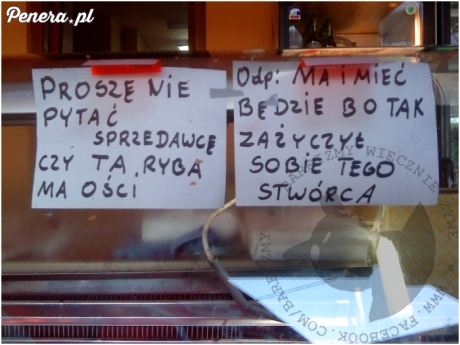 Penera.pl
PROSZĘ NIE
PYTAĆ
SPRZEDAWCĘ
CZY TA RYBA
MA OŚCI
Odp: MA i MIEĆ
BĘDZIE BO TAK
ZAŻYCZYŁ
SOBIE TEGO
STWÓRCA
WWW.FACEBOOK.COM/BARBARZY
WIECZNIE ŻYWE